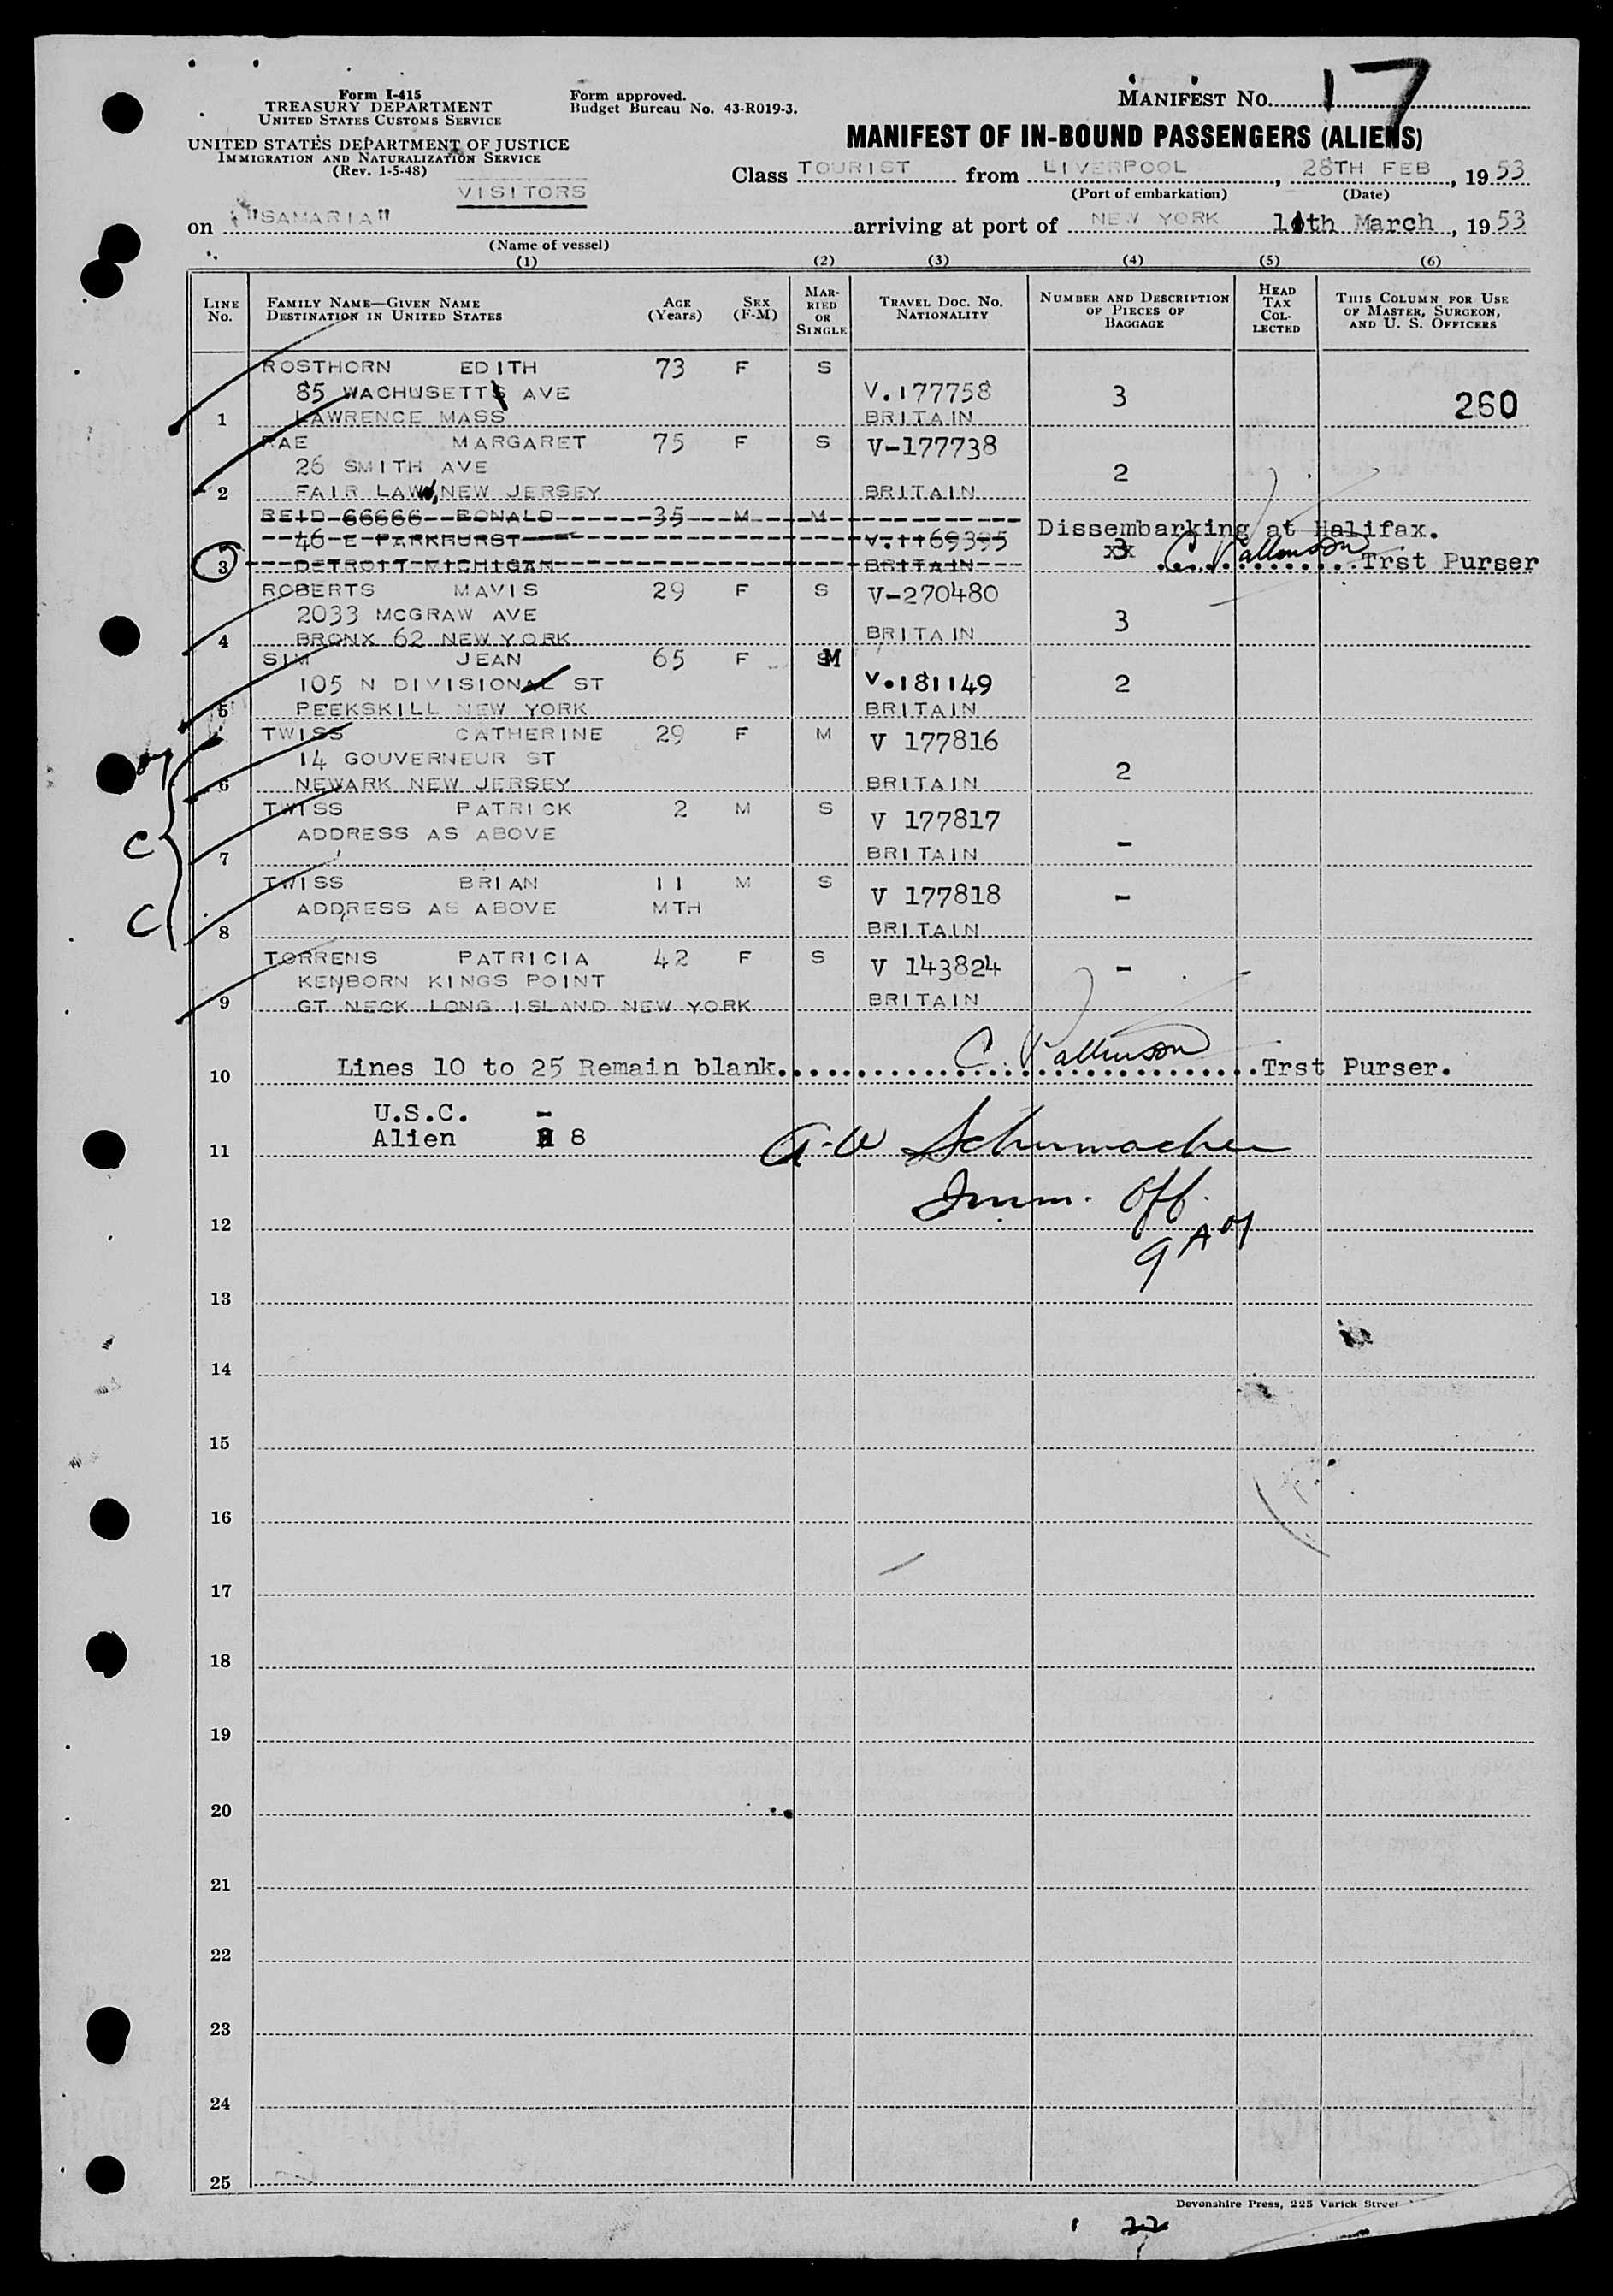 Form I-415
TREASURY DEPARTMENT
UNITED STATES CUSTOMS SERVICE
UNITED STATES DEPARTMENT OF JUSTICE
IMMIGRATION AND NATURALIZATION SERVICE
(Rev. 1-5-48)
Form approved.
Budget Bureau No. 43-R019-3.
MANIFEST NO. 17
MANIFEST OF IN-BOUND PASSENGERS (ALIENS)
VISITORS
Class TOURIST from LIVERPOOL, 28TH FEB, 1953
(Port of embarkation) (Date)
on "SAMARIA" arriving at port of NEW YORK th March, 1953
(Name of vessel)
(1) (2) (3) (4) (5) (6)
LINE NO. FAMILY NAME—GIVEN NAME DESTINATION IN UNITED STATES AGE (Years) SEX (F-M) MARRIED OR SINGLE TRAVEL DOC. NO. NATIONALITY NUMBER AND DESCRIPTION OF PIECES OF BAGGAGE HEAD TAX COLLECTED THIS COLUMN FOR USE OF MASTER, SURGEON, AND U. S. OFFICERS
ROSTHORN EDITH 73 F S
85 WACHUSETTS AVE V.177758 3 260
1 LAWRENCE MASS BRITAIN
RAE MARGARET 75 F S V-177738
26 SMITH AVE 2
2 FAIR LAWN, NEW JERSEY BRITAIN
REID 66666 RONALD 35 M M Dissembarking at Halifax.
46 E PARKHURST V.1169395 3
3 DETROIT MICHIGAN BRITAIN C. Pattinson Trst Purser
ROBERTS MAVIS 29 F S V-270480
2033 MCGRAW AVE 3
4 BRONX 62 NEW YORK BRITAIN
SIM JEAN 65 F M
105 N DIVISION ST V.181149 2
5 PEEKSKILL NEW YORK BRITAIN
TWISS CATHERINE 29 F M V 177816
14 GOUVERNEUR ST 2
6 NEWARK NEW JERSEY BRITAIN
TWISS PATRICK 2 M S V 177817
C ADDRESS AS ABOVE -
7 BRITAIN
TWISS BRIAN 11 M S V 177818
C ADDRESS AS ABOVE MTH -
8 BRITAIN
TORRENS PATRICIA 42 F S V 143824
KENBORN KINGS POINT -
9 GT NECK LONG ISLAND NEW YORK BRITAIN
10 Lines 10 to 25 Remain blank C. Pattinson Trst Purser.
U.S.C. -
11 Alien 8 A-W Schumacher
Imm. Off.
12
9 A
13
14
15
16
17
18
19
20
21
22
23
24
25
Devonshire Press, 225 Varick Street
22